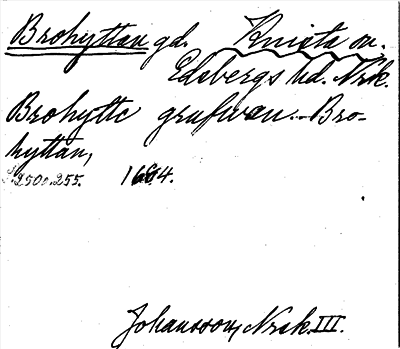 Brohyttan gd. Knista sn.
Edsbergs hd. Nrk.
Brohytte grufwan. - Bro-
hyttan,
s. 250 o. 255. 1664.
Johansson, Nrsk. III.